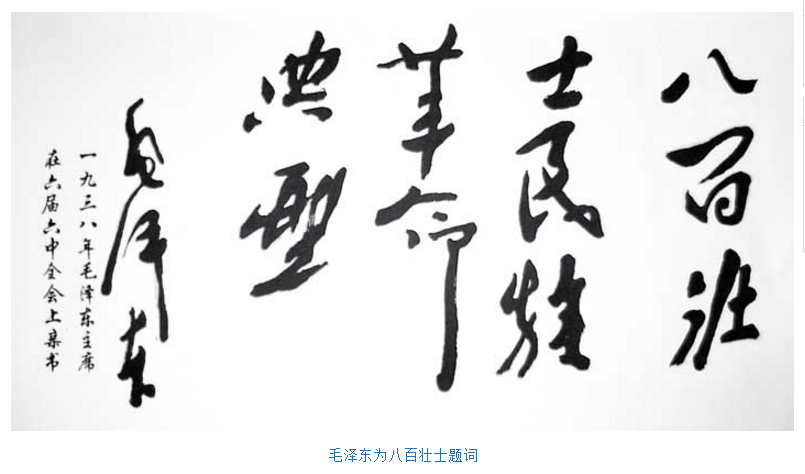 八百壮
士民族
革命
典型
毛泽东
一九三八年毛泽东主席
在六届六中全会上书
毛泽东为八百壮士题词